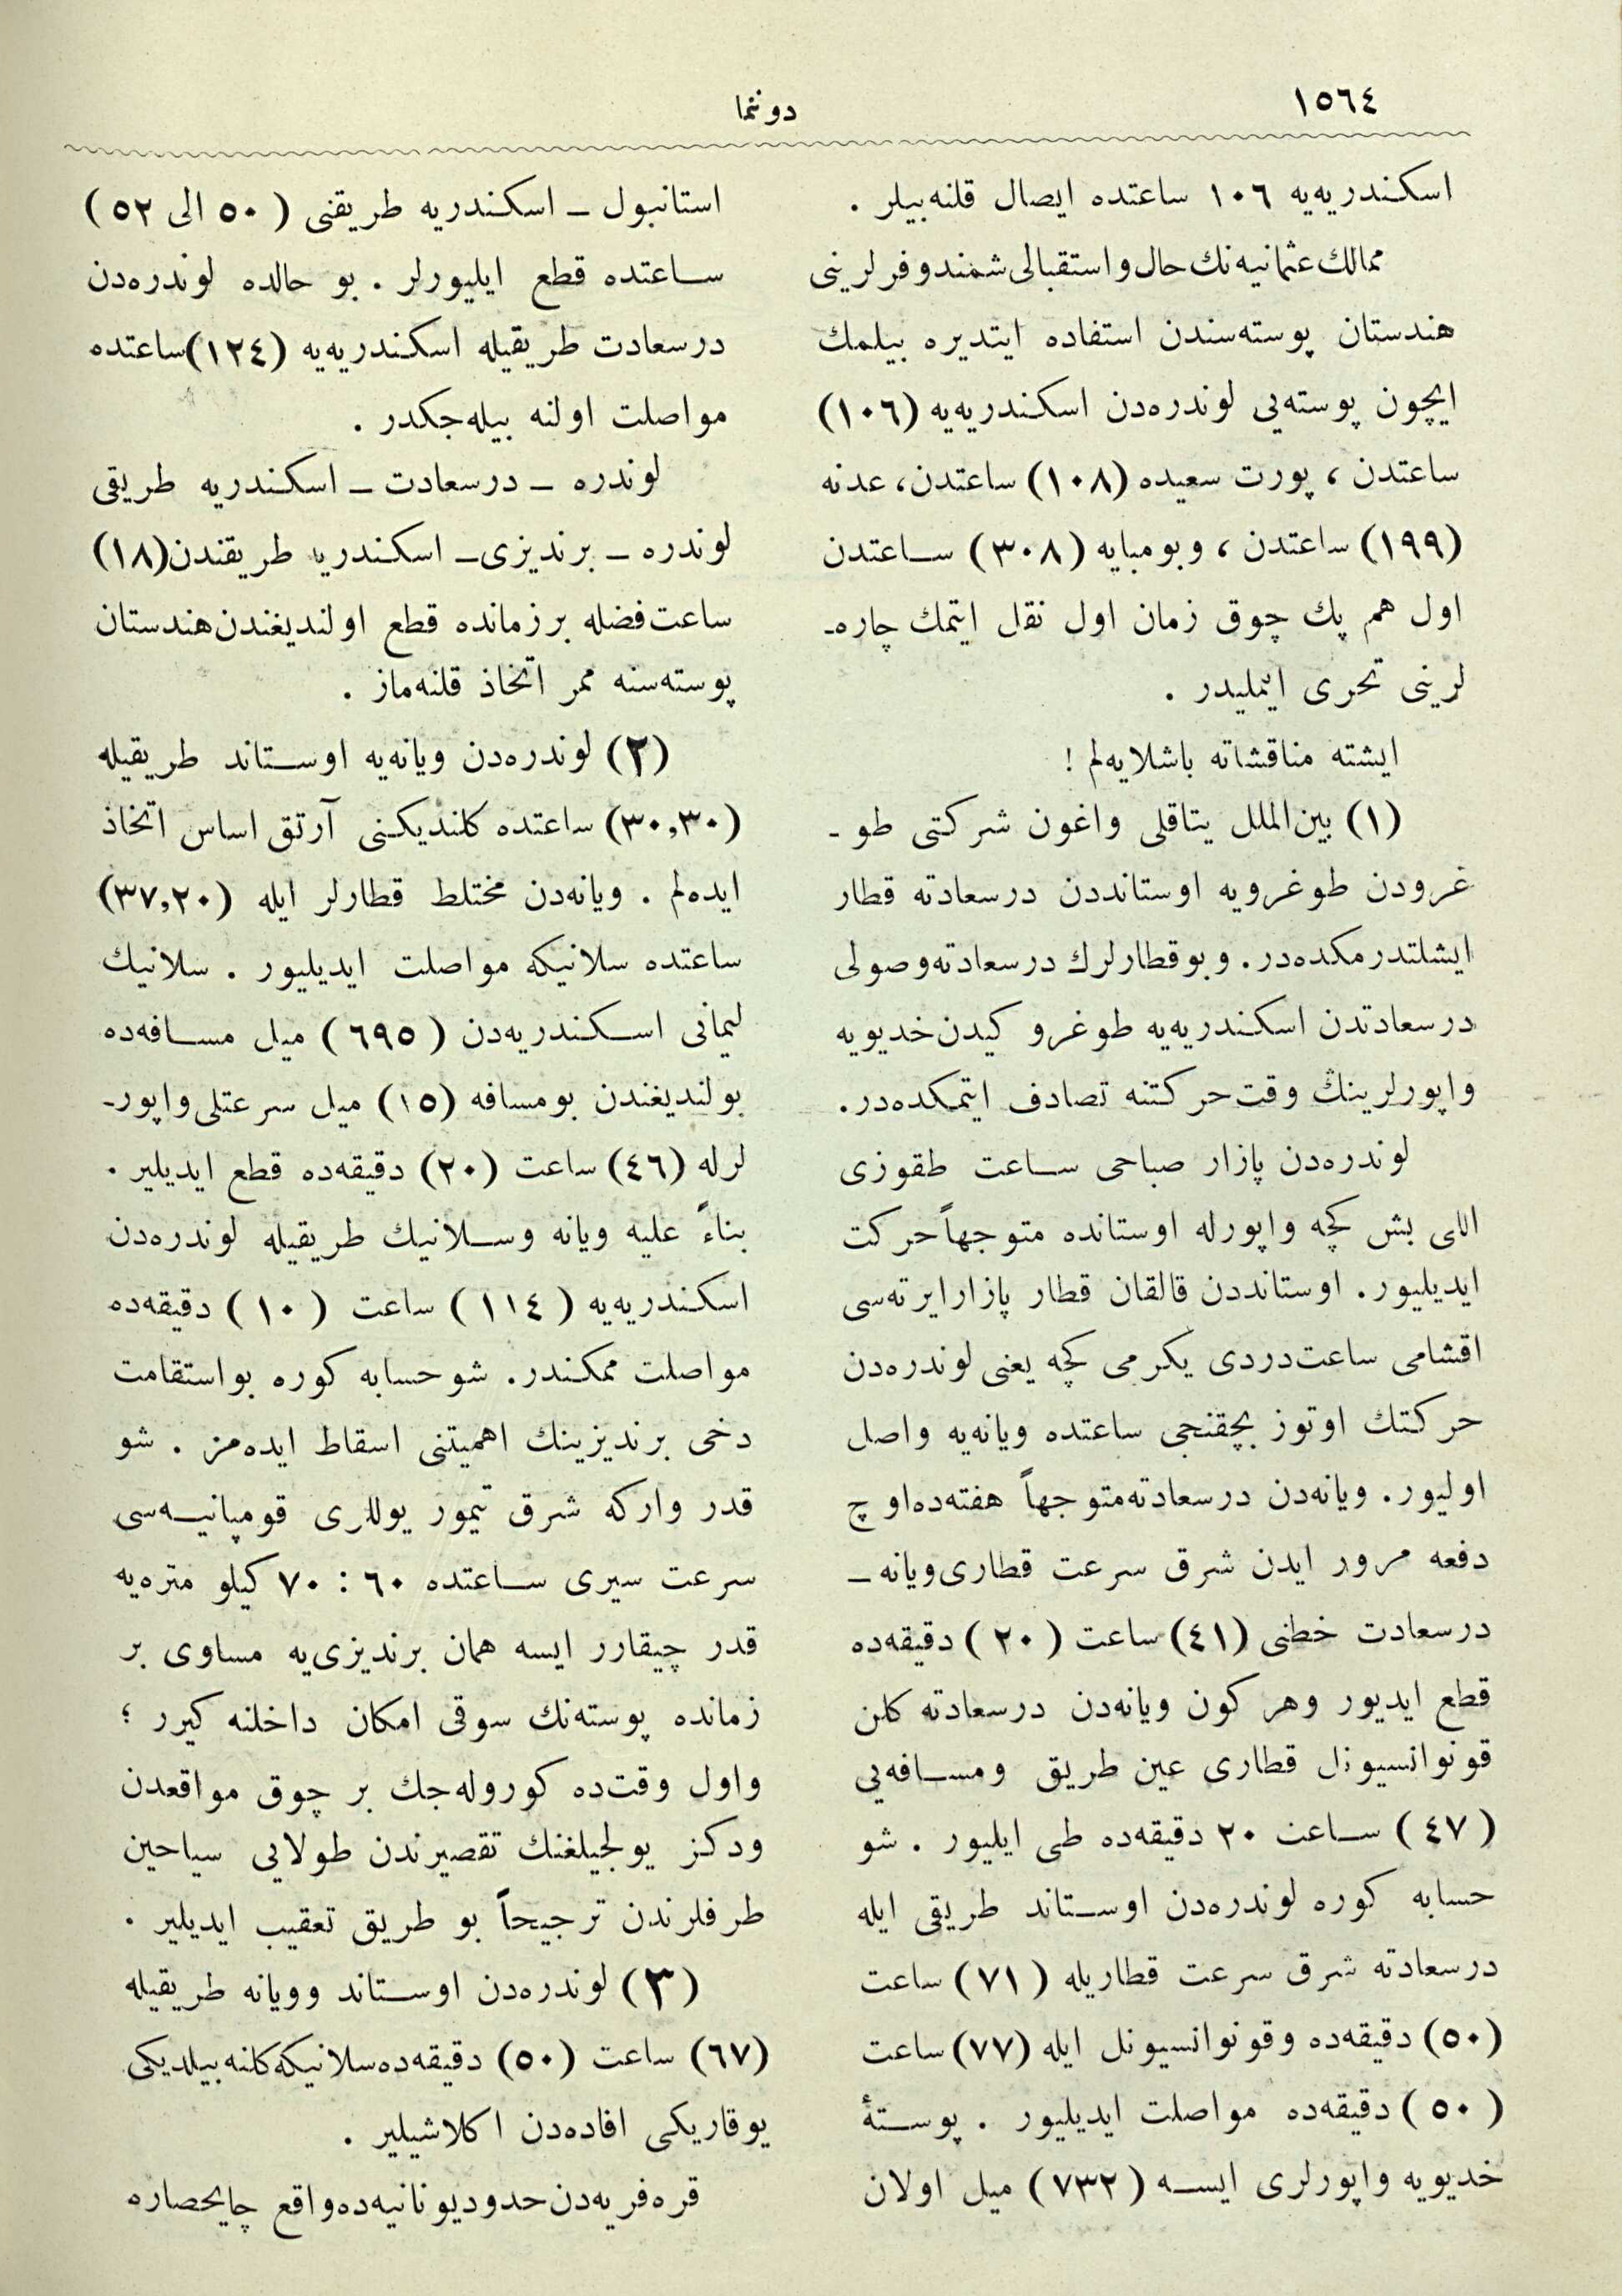 ١٥٦٤
دوننما
اسكندريه‌يه ١٠٦ ساعتده ايصال قلنه‌بيلر .
ممالك عثمانيه‌نك حال واستقبالی شمندوفرلرينی
هندستان پوسته‌سندن استفاده ايتديره بيلمك
ايچون پوسته‌يی لوندره‌دن اسكندريه‌يه (١٠٦)
ساعتدن ، پورت سعيده (١٠٨) ساعتدن، عدنه
(١٩٩) ساعتدن ، وبومبايه (٣٠٨) ساعتدن
اول هم پك چوق زمان اول نقل ايتمك چاره‌ـ
لرينی تحری ايتمليدر .
ايشته مناقشاته باشلايه‌لم !
(١) بين‌الملل يتاقلی واغون شركتی طو ـ
غرودن طوغرويه اوستانددن درسعادته قطار
ايشلتدرمكده‌در. وبوقطارلرك درسعادته وصولی
درسعادتدن اسكندريه‌يه طوغرو كيدن خديويه
واپورلرينڭ وقت حركتنه تصادف ايتمكده‌در.
لوندره‌دن پازار صباحی ساعت طقوزی
اللی بش كچه واپورله اوستانده متوجهاً حركت
ايديليور. اوستانددن قالقان قطار پازارايرته‌سی
اقشامی ساعت‌دردی يكرمی كچه يعنی لوندره‌دن
حركتك اوتوز بچقنجی ساعتده ويانه‌يه واصل
اوليور. ويانه‌دن درسعادته‌متوجهاً هفته‌ده‌اوچ
دفعه مرور ايدن شرق سرعت قطاری ويانه ـ
درسعادت خطنی (٤١) ساعت (٢٠) دقيقه‌ده
قطع ايديور وهر كون ويانه‌دن درسعادته كلن
قونوانسيونل قطاری عين طريق ومسافه‌يی
(٤٧) ساعت ٢٠ دقيقه‌ده طی ايليور . شو
حسابه كوره لوندره‌دن اوستاند طريقی ايله
درسعادته شرق سرعت قطاريله (٧١) ساعت
(٥٠) دقيقه‌ده وقونوانسيونل ايله (٧٧) ساعت
(٥٠) دقيقه‌ده مواصلت ايديليور . پوستهٔ
خديويه واپورلری ايسه (٧٣٢) ميل اولان
استانبول ـ اسكندريه طريقنی (٥٠ الی ٥٢)
ساعتده قطع ايليورلر . بو حالده لوندره‌دن
درسعادت طريقيله اسكندريه‌يه (١٢٤) ساعتده
مواصلت اولنه بيله‌جكدر .
لوندره ـ درسعادت ـ اسكندريه طريقی
لوندره ـ برنديزی ـ اسكندريه طريقندن (١٨)
ساعت فضله برزمانده قطع اولنديغندن هندستان
پوسته‌سنه ممر اتخاذ قلنه‌ماز .
(٢) لوندره‌دن ويانه‌يه اوستاند طريقيله
(٣٠,٣٠) ساعتده كلنديكنی آرتق اساس اتخاذ
ايده‌لم . ويانه‌دن مختلط قطارلر ايله (٣٧,٢٠)
ساعتده سلانيكه مواصلت ايديليور . سلانيك
ليمانی اسكندريه‌دن (٦٩٥) ميل مسافه‌ده
بولنديغندن بومسافه (١٥) ميل سرعتلی واپورـ
لرله (٤٦) ساعت (٢٠) دقيقه‌ده قطع ايديلير .
بناءً عليه ويانه وسلانيك طريقيله لوندره‌دن
اسكندريه‌يه (١١٤) ساعت (١٠) دقيقه‌ده
مواصلت ممكندر. شو حسابه كوره بواستقامت
دخی برنديزينك اهميتنی اسقاط ايده‌مز . شو
قدر واركه شرق تيمور يوللری قومپانيه‌سی
سرعت سيری ساعتده ٦٠ : ٧٠ كيلو متره‌يه
قدر چيقارر ايسه همان برنديزی‌يه مساوی بر
زمانده پوسته‌نك سوقی امكان داخلنه كيرر ؛
واول وقت‌ده كوروله‌جك بر چوق مواقعدن
ودكز يولجيلغنك تقصيرندن طولايی سياحين
طرفلرندن ترجيحاً بو طريق تعقيب ايديلير .
(٣) لوندره‌دن اوستاند وويانه طريقيله
(٦٧) ساعت (٥٠) دقيقه‌ده سلانيكه كلنه‌بيلديكی
يوقاريكی افاده‌دن اكلاشيلير .
قره‌فريه‌دن حدوديونانيه‌ده واقع چايحصاره